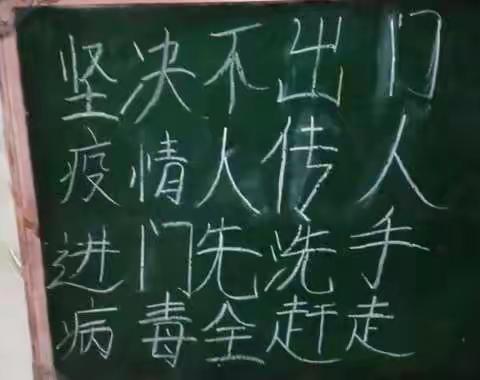 坚决不出门
疫情人传人
进门先洗手
病毒全赶走